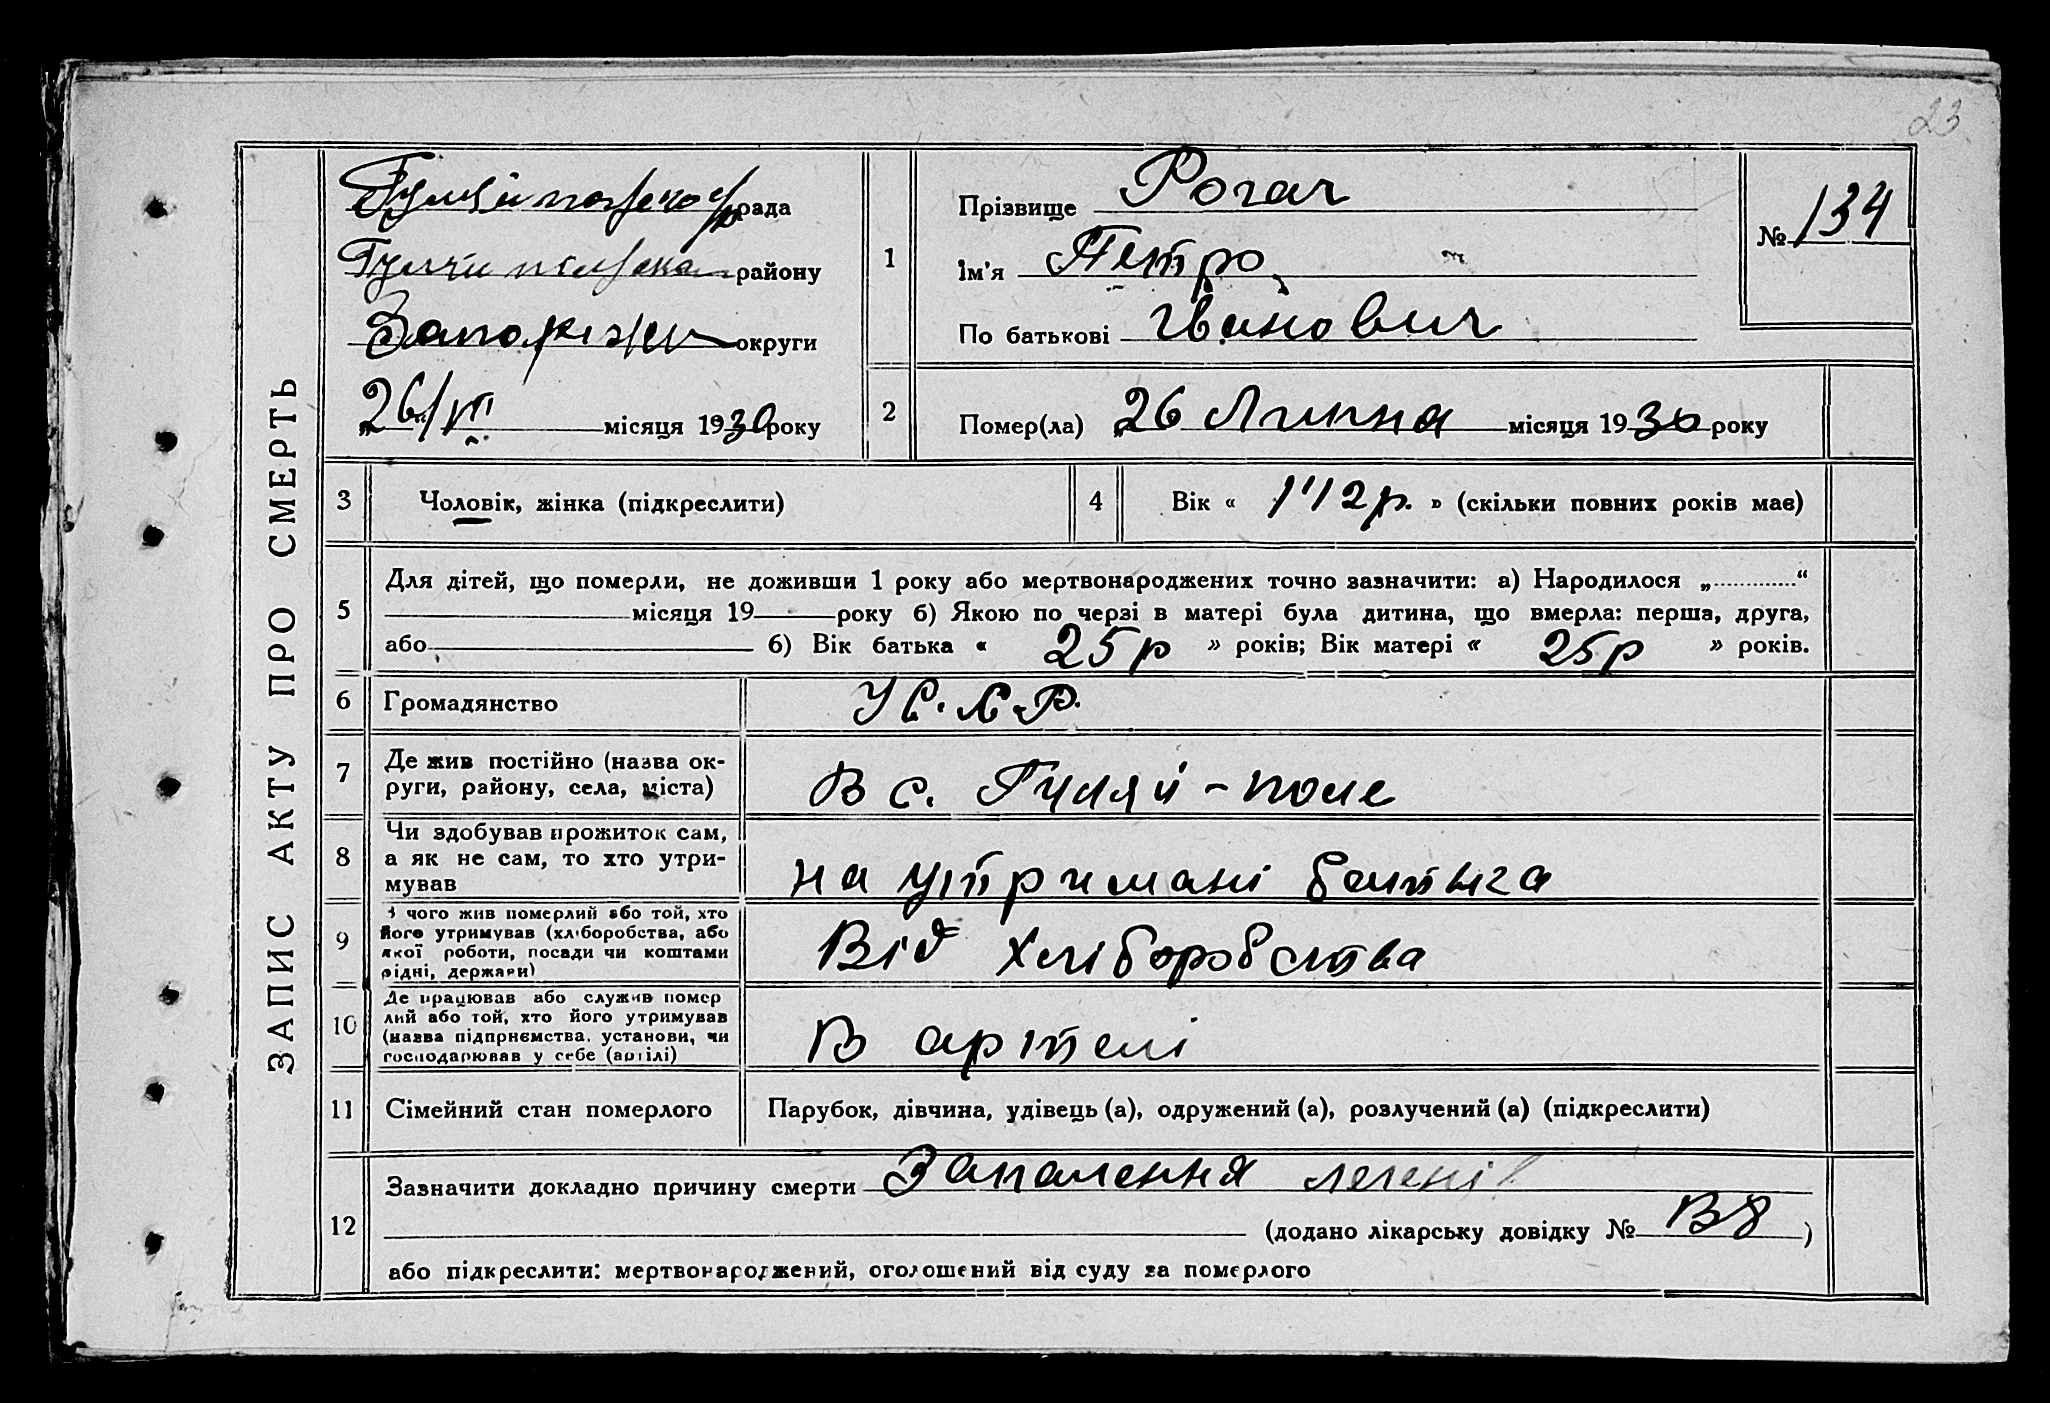 23
ЗАПИС АКТУ ПРО СМЕРТЬ
рада
району
округи
26/VII місяця 1930 року
1
Прізвище Рогач
Ім'я Петро
По батькові Іванович
№ 134
2
Помер(ла) „26 Липня місяця 1930 року
3 Чоловік, жінка (підкреслити)
4 Вік « 1 1/2 р. » (скільки повних років має)
5
Для дітей, що померли, не доживши 1 року або мертвонароджених точно зазначити: а) Народилося „............“
місяця 19 року б) Якою по черзі в матері була дитина, що вмерла: перша, друга,
або б) Вік батька « 25 р » років; Вік матері « 25 р » років.
6 Громадянство У С. С. Р.
7
Де жив постійно (назва ок-
руги, району, села, міста)
В с. Гуляй-поле
8
Чи здобував прожиток сам,
а як не сам, то хто утри-
мував
на утримані батька
9
З чого жив померлий або той, хто
його утримував (хліборобства, або
якої роботи, посади чи коштами
рідні, держави)
Від хліборобства
10
Де працював або служив помер
лий або той, хто його утримував
(назва підприємства, установи, чи
господарював у себе (артілі)
В артелі
11 Сімейний стан померлого
Парубок, дівчина, удівець (а), одружений (а), розлучений (а) (підкреслити)
12
Зазначити докладно причину смерти Запалення легенів
(додано лікарську довідку № )
або підкреслити: мертвонароджений, оголошений від суду за померлого